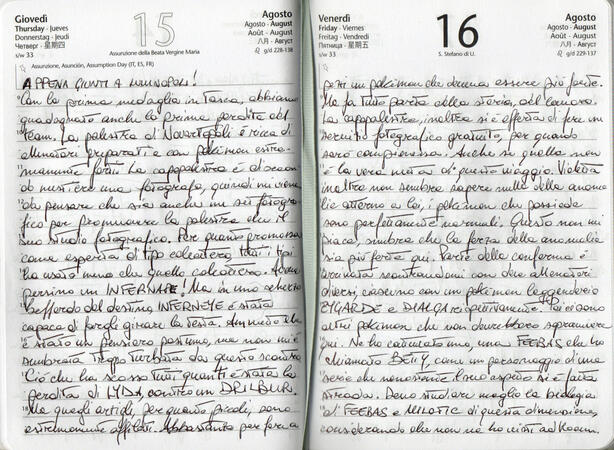 Giovedì
Thursday · Jeudi
Donnerstag · Jueves
Четверг · 星期四
s/w 33
15
Assunzione della Beata Vergine Maria
Agosto
August · August
Août · Agosto
八月 · Август
g/d 228-138
Assunzione, Asunción, Assumption Day (IT, ES, FR)
APPENA GIUNTI A LUMINOPOLI!
Con la prima medaglia in tasca, abbiamo
guadagnato anche la prima perdita del
team. La palestra di Novartopoli è ricca di
allenatori preparati e con pokémon estre-
mamente forti. La capopalestra è
una fotografa, quindi mi viene
da pensare che sia anche un set fotogra-
fico per promuovere la palestra che il
suo studio fotografico. Per quanto promossa
come esperta di tipo coleottero, tutti i tipi
ha usato meno che quello coleottero. Aveva
persino un INFERNAPE! Ma in uno scherzo
beffardo del destino INFERNEYE è stata
capace di fargli girare la testa. Ammetto che
è stato un pensiero positivo, ma non mi è
sembrata troppo turbata da questo scontro.
Ciò che ha scosso tutti quanti è stata la
perdita di contro un DRILBUR.
Ma quegli artigli, per quanto piccoli, sono
estremamente affilati. Abbastanza per fera
Venerdì
Friday · Vendredi
Freitag · Viernes
Пятница · 星期五
s/w 33
16
S. Stefano di U.
Agosto
August · August
Août · Agosto
八月 · Август
g/d 229-137
persi un pokémon che doveva essere più forte.
Ma fa tutto parte della storia, del lavoro.
La capopalestra, inoltre si è offerta di fare un
servizio fotografico gratuito, per quando
sarò campionessa. Anche se quella non
è la vera meta di questo viaggio. Violetta
inoltre non sembra sapere nulla delle anoma-
lie attorno a lei, i pokémon che possiede
sono perfettamente normali. Questo non mi
piace, sembra che la forza della anomalia
sia più forte qui. Parte della conferma è
arrivata scontrandomi con due allenatori
diversi, ciascuno con un pokémon leggendario
ZYGARDE e DIALGA rispettivamente. Poi ci sono
altri pokémon che non dovrebbero
qui. Ne ho catturato uno, una FEEBAS che ho
chiamato BETTY, come un personaggio di una
serie che nonostante il suo aspetto si è fatta
strada. Devo studiare meglio la biologia
di FEEBAS e MILOTIC di questa dimensione,
considerando che non ne ho visti ad Hoenn.